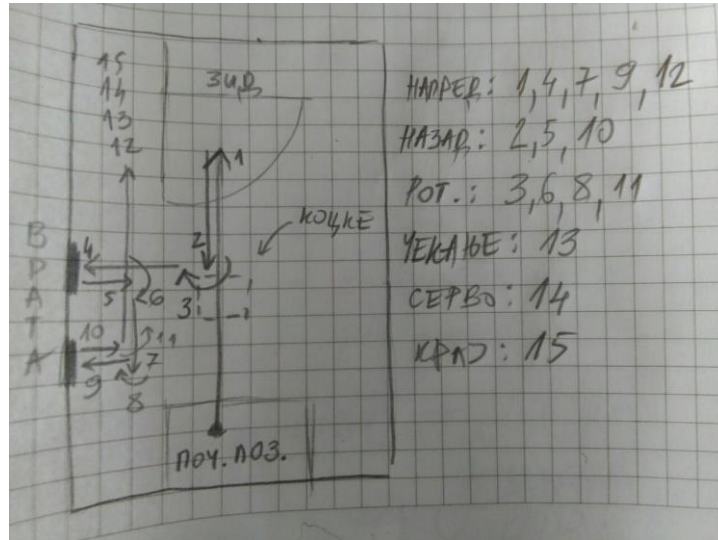 15
14
13
12
ЗИД
1
2
КОЦКЕ
ВРАТА
4
3
5
6
10
11
7
9
8
ПОЧ. ПОЗ.
НАПРЕД: 1,4,7,9,12
НАЗАД: 2,5,10
РОТ.: 3,6,8,11
ЧЕКАЊЕ: 13
СЕРВО: 14
КРАЈ: 15